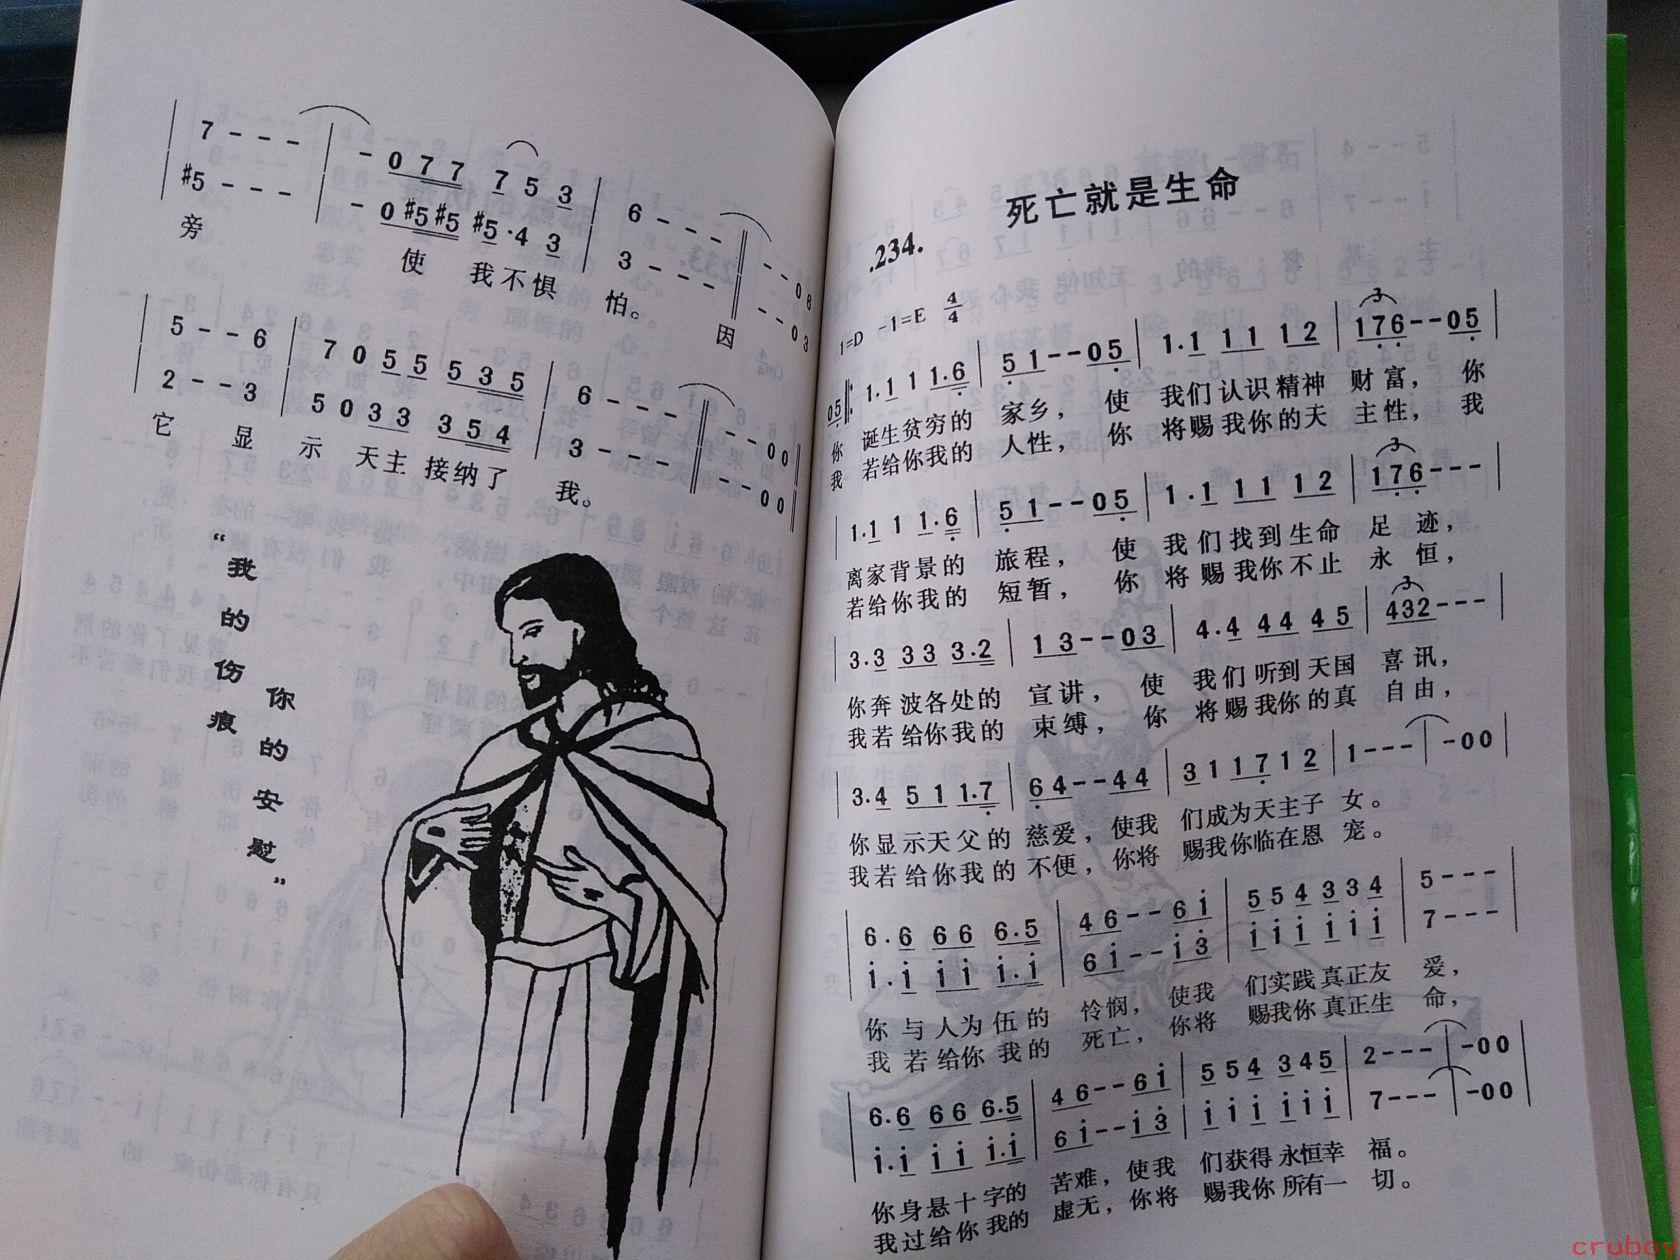 7 - - - | - 0 7 7 7 5 3 | 6 - - - || - - 0 6
#5 - - - | - 0 #5 #5 #5 · 4 3 | 3 - - - || - - 0 3
旁 使 我不惧 怕。 因
5 - - 6 | 7 0 5 5 5 3 5 | 6 - - - || - - 0 0
2 - - 3 | 5 0 3 3 3 5 4 | 3 - - - || - - 0 0
它 显 示 天主 接纳了 我。
“我的伤痕
你的安慰”
死亡就是生命
.234.
1=D -1=E 4/4
0 5 |: 1 . 1 1 1 . 6 | 5 1 - - 0 5 | 1 . 1 1 1 1 2 | 1 7 6 - - 0 5 |
你 诞生贫穷的 家乡， 使 我们认识精神 财富， 你
我 若给你我的 人性， 你 将赐我你的天 主性， 我
1 . 1 1 1 . 6 | 5 1 - - 0 5 | 1 . 1 1 1 1 2 | 1 7 6 - - - |
离家背景的 旅程， 使 我们找到生命 足 迹，
若给你我的 短暂， 你 将赐我你不止 永 恒，
3 . 3 3 3 3 . 2 | 1 3 - - 0 3 | 4 . 4 4 4 4 5 | 4 3 2 - - - |
你奔波各处的 宣讲， 使 我们听到天国 喜讯，
我若给你我的 束缚， 你 将赐我你的真 自由，
3 . 4 5 1 1 . 7 | 6 4 - - 4 4 | 3 1 1 7 1 2 | 1 - - - | - 0 0 |
你显示天父的 慈爱，使我 们成为天主子 女。
我若给你我的 不便，你将 赐我你临在恩 宠。
6 . 6 6 6 6 . 5 | 4 6 - - 6 i | 5 5 4 3 3 4 | 5 - - - |
i . i i i i . i | 6 i - - i 3 | i i i i i i | 7 - - - |
你与人为伍的 怜悯， 使我 们实践真正友 爱，
我若给你我的 死亡，你将 赐我你真正生 命，
6 . 6 6 6 6 . 5 | 4 6 - - 6 i | 5 5 4 3 4 5 | 2 - - - | - 0 0 |
i . i i i i . i | 6 i - - i 3 | i i i i i i | 7 - - - | - 0 0 |
你身悬十字的 苦难，使我 们获得永恒幸 福。
我过给你我的 虚无，你将 赐我你所有一 切。
cruboy